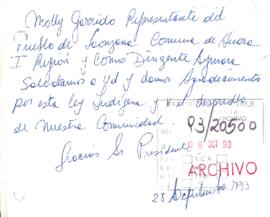 Molly Garrido Representante del
Pueblo de Socoroma Comuna de
I Región y Como Dirigente Aymara
Saludamos a Ud y damos Agradecimiento
por esta ley Indígena y el desarrollo
de Nuestra Comunidad.
Gracias Sr Presidente
93/20500
06 OCT 93
ARCHIVO
28 Septiembre 1993